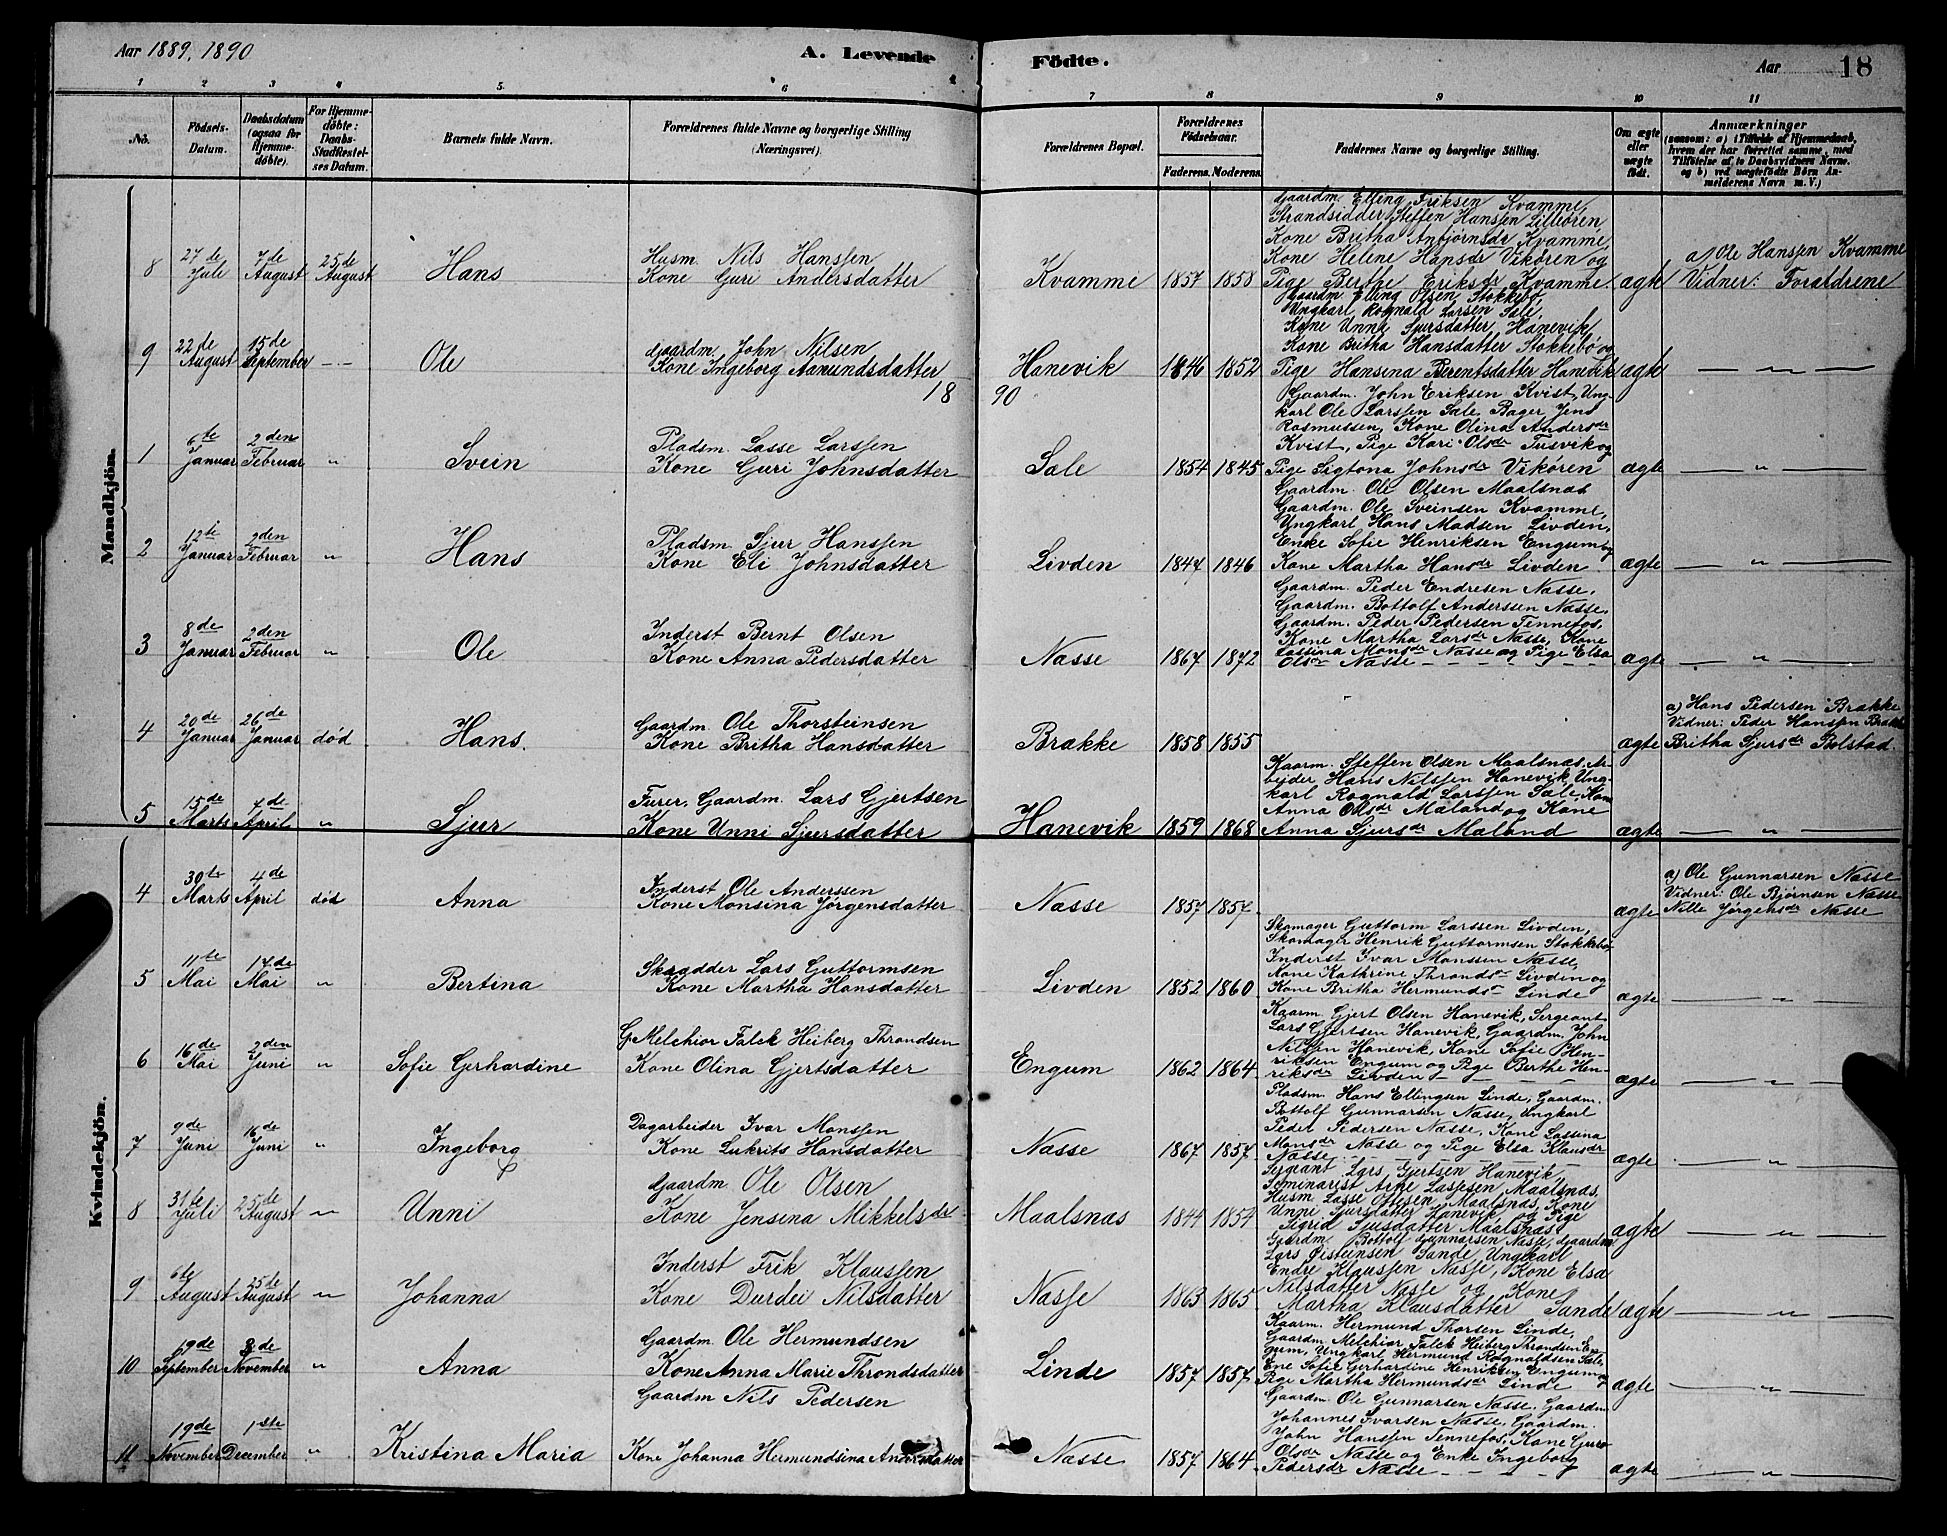 Aar 1889, 1890
A. Levende Födte.
Aar 18
1 2 3 4 5. 6 7 8 9 10 11
No. Födsels-Datum. Daabsdatum (ogsaa for Hjemmedöbte). For Hjemmedöbte: Daabs-Stadfæstelses Datum. Barnets fulde Navn. Forældrenes fulde Navne og borgerlige Stilling (Næringsvei). Forældrenes Bopæl. Forældrenes Födselsaar. Faderens. Moderens. Faddernes Navne og borgerlige Stilling. Om ægte eller uægte födt. Anmærkninger (saasom: a) i Tilfælde af Hjemmedaab, hvem der har forrettet samme, med Tilföielse af to Daabsvidners Navne. og b) ved uægtefödte Börn Anmelderens Navn m. V.)
Mandkjön.
Gaardm. Elling Eriksen Kvamme,
Strandsidder Steffen Hanssen Lilleören,
Kone Britha Anbjørnsdr Kvamme,
Kone Helene Hansdr Vikören og
8 27de Juli 7de August 25de August Hans Husm. Nils Hanssen
Kone Guri Andersdatter Kvamme 1857 1858 Pige Berthe Eriksdr Kvamme. ægte a) Ole Hanssen Kvamme
Vidner: Forældrene
Gaardm Elling Olsen Stokkebø,
Ungkarl Rognald Larsen Sale,
Kone Unni Sjursdatter, Hanevik,
Kone Britha Hansdatter Stokkebø og
9 22de August 15de September — Ole Gaardm John Nilsen
Kone Ingeborg Aamundsdatter Hanevik 1846 1852 Pige Hansina Berentsdatter Hanevik ægte — " —
1890
Gaardm. John Eriksen Kvist, Ung-
karl Ole Larssen Sale, Bager Jens
Rasmussen, Kone Olina Andersdr
Kvist, Pige Kari Olsdr Tusvik og
1 6te Januar 2den Februar " Svein Pladsm. Lasse Larssen
Kone Guri Johnsdatter Sale 1854 1845 Pige Sigtona Johnsdr Vikören ægte — " —
Gaardm. Ole Olsen Maalsnæs
Gaardm. Ole Sveinsen Kvamme,
Ungkarl Hans Madsen Livden,
Enke Sofie Henriksen Engum og
2 12te Januar 2den Februar " Hans Pladsm. Sjur Hanssen
Kone Eli Johnsdatter Livden 1847 1846 Kone Martha Hansdr Livden ægte — " —
Gaardm. Peder Endresen Nasse,
Gaardm. Bottolf Anderssen Nasse,
Gaardm. Peder Pedersen Tennefos,
Kone Martha Larsdr Nasse, Kone
Lassina Monsdr Nasse og Pige Elsa
3 8de Januar 2den Februar " Ole Inderst Bernt Olsen
Kone Anna Pedersdatter Nasse 1867 1872 Olsdr Nasse ægte — " —
4 20de Januar 26de Januar död Hans. Gaardm. Ole Thorsteinsen
Kone Britha Hansdatter Brække 1858 1855 ægte a) Hans Pedersen Brække
Vidner: Peder Hanssen Brække
Britha Sjursdr Bolstad.
Kaarm. Steffen Olsen Maalsnæs, Ar-
beider Hans Nilssen Hanevik, Ung-
karl Rognald Larssen Sæle, Kone
Anna Olsdr Mæland og Kone
5 15de Marts 4de April " Sjur Furer, Gaardm. Lars Gjertsen
Kone Unni Sjursdatter Hanevik 1859 1868 Anna Sjursdr Mæland ægte — " —
Kvindekjön.
4 30te Marts 4de April död Anna Inderst Ole Anderssen
Kone Monsina Jørgensdatter Nasse 1857 1857 ægte a) Ole Gunnarsen Nasse
Vidner: Ole Bjørnsen Nasse
Nille Jørgensdr Nasse
Skomager Guttorm Larssen Livden,
Skomager Henrik Guttormsen Stokkebø
Inderst Ivar Monssen Nasse,
Kone Kathrine Throndsdr Livden og
5 11te Mai 14de Mai " Bertina Skrædder Lars Guttormsen
Kone Martha Hansdatter Livden 1852 1860 Kone Britha Hermundsdr Linde ægte — " —
Kaarm. Gjert Olsen Hanevik, Sergeant
Lars Gjertsen Hanevik, Gaardm. John
Nilssen Hanevik, Kone Sofie Hen-
riksen Engum og Pige Berthe Hen-
6 16de Mai 2den Juni " Sofie Gerhardine G. Melchior Falck Heiberg Throndsen
Kone Olina Gjertsdatter Engum 1862 1864 riksdr Livden ægte — " —
Pladsm. Hans Ellingsen Linde, Gaardm.
Bottolf Gunnarsen Nasse, Ungkarl
Peder Pedersen Nasse, Kone Lassina
Monsdr Nasse og Pige Elsa Klausdr
7 9de Juni 16de Juni " Ingeborg Dagarbeider Ivar Monssen
Kone Lukrits Hansdatter Nasse 1867 1857 Nasse ægte — " —
Sergeant Lars Gjertsen Hanevik,
Seminarist Arne Lassesen Maalsnæs,
Husm. Lasse Ottesen Maalsnæs, Kone
Unni Sjursdatter Hanevik og Pige
8 31te Juli 25de August " Unni Gaardm. Ole Olsen
Kone Jensina Mikkelsdr Maalsnæs 1844 1854 Sigrid Sjusdatter Maalsnæs ægte — " —
Gaardm Bottolf Gunnarsen Nasse, Gaardm
Lars Øisteinsen Sande, Ungkarl
Endre Klaussen Nasse, Kone Elsa
Nilsdatter Nasse og Kone
9 6te August 25de August " Johanna Inderst Erik Klaussen
Kone Durdei Nilsdatter Nasse 1863 1865 Martha Klausdatter Sande ægte — " —
Kaarm. Hermund Thorsen Linde,
Gaardm Melchior Falck Heiberg Throndsen En-
gum, Ungkarl Hermund Rognaldsen Sale,
Ene Sofie Gerhardine Henriksen Engum og
10 19de September 3de November " Anna Gaardm. Ole Hermundsen
Kone Anna Marie Throndsdatter Linde 1857 1857 Pige Martha Hermundsdr Linde ægte — " —
Gaardm. Ole Gunnarsen Nasse, Gaardm
Johannes Ivarsen Nasse, Gaardm.
John Hanssen Tennefos, Kone Guro
Olsdr Nasse og Enke Ingeborg
11 19de November 1ste December " Kristina Maria Gaardm Nils Pedersen
Kone Johanna Hermundsina Andersdatter Nasse 1857 1864 Pedersdr Nasse ægte — " —